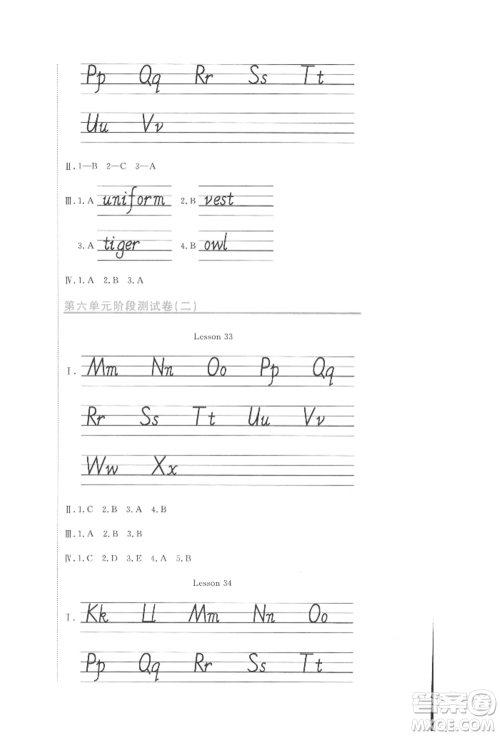 Pp Qq Rr Ss Tt
Uu Vv
Ⅱ. 1—B 2—C 3—A
Ⅲ. 1. A uniform 2. B vest
3. A tiger 4. B owl
Ⅳ. 1. A 2. B 3. A
第六单元阶段测试卷(二)
Lesson 33
Ⅰ. Mm Nn Oo Pp Qq
Rr Ss Tt Uu Vv
Ww Xx
Ⅱ. 1. C 2. B 3. A 4. B
Ⅲ. 1. A 2. B 3. B
Ⅳ. 1. C 2. D 3. E 4. A 5. B
Lesson 34
Ⅰ. Kk Ll Mm Nn Oo
Pp Qq Rr Ss Tt
答案圈
MXQE.COM